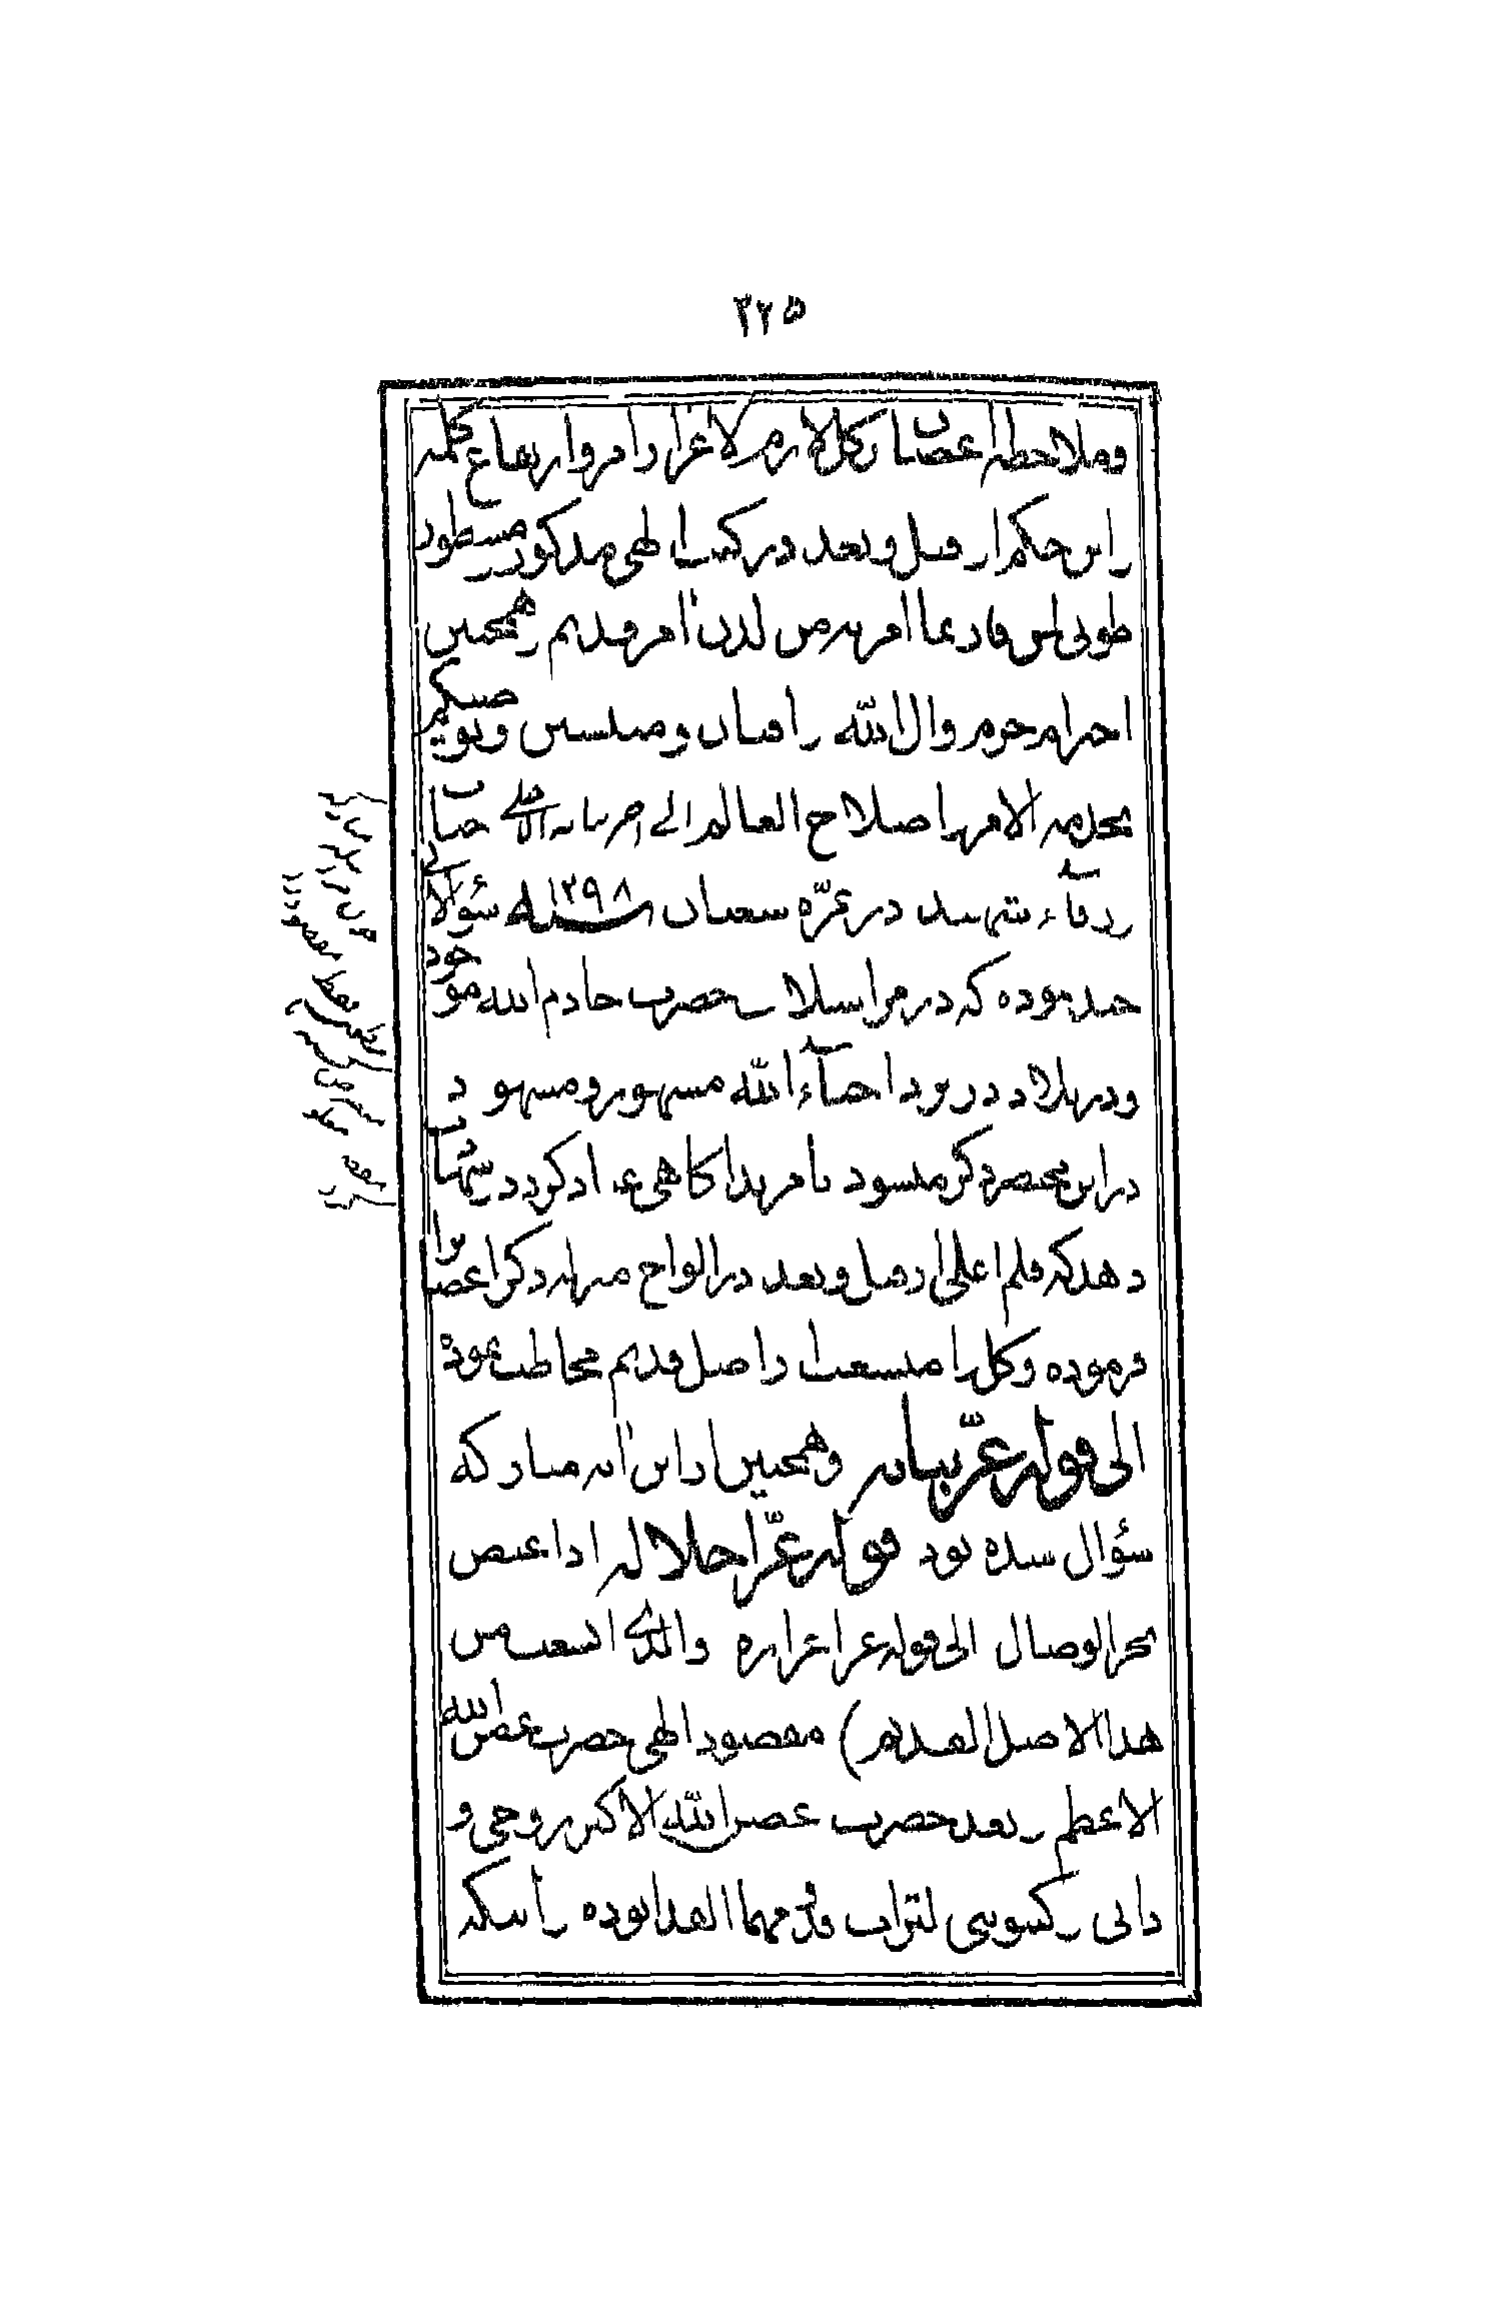 ٢٢۵
وملاحظه اغصان بر کل لازم لاعزاز امر و ارتفاع کلمه
و این حکم از قبل و بعد در کتب الهی مذکور و مسطور
طوبی لمن فاز بما امر به من لدن آمر قدیم و همچنین
احترام حرم و آل الله و افنان و منتسبین و نوصیکم
بخدمة الامم و اصلاح العالم الی آخر بیانه الاعلی جناب
ورقاء شهید در غرّه شعبان سنه ١٢٩٨ سؤالاتی
چند نموده که در مراسلات حضرت خادم الله موجود
و در بلاد در نزد احبآء الله مشهور و مشهود
در این مختصر ذکر میشود تا مزید آگاهی
دهد که قلم اعلی از قبل و بعد در الواح منزله ذکر اغصان را
فرموده و کل را منشعب از اصل قدیم مخاطب نموده
الی قوله عزّ بیانه و همچنین از این آیه مبارکه
سؤال شده بود قوله عزّ اجلاله اذا غیض
بحر الوصال الی قوله عز اعزازه والذی انشعب من
هذا الاصل القدیم) مقصود الهی حضرت غصن الله
الاعظم و بعد حضرت غصن الله الاکبر روحی و
ذاتی و کینونتی لتراب قدومهما الفدا بوده و اینکه